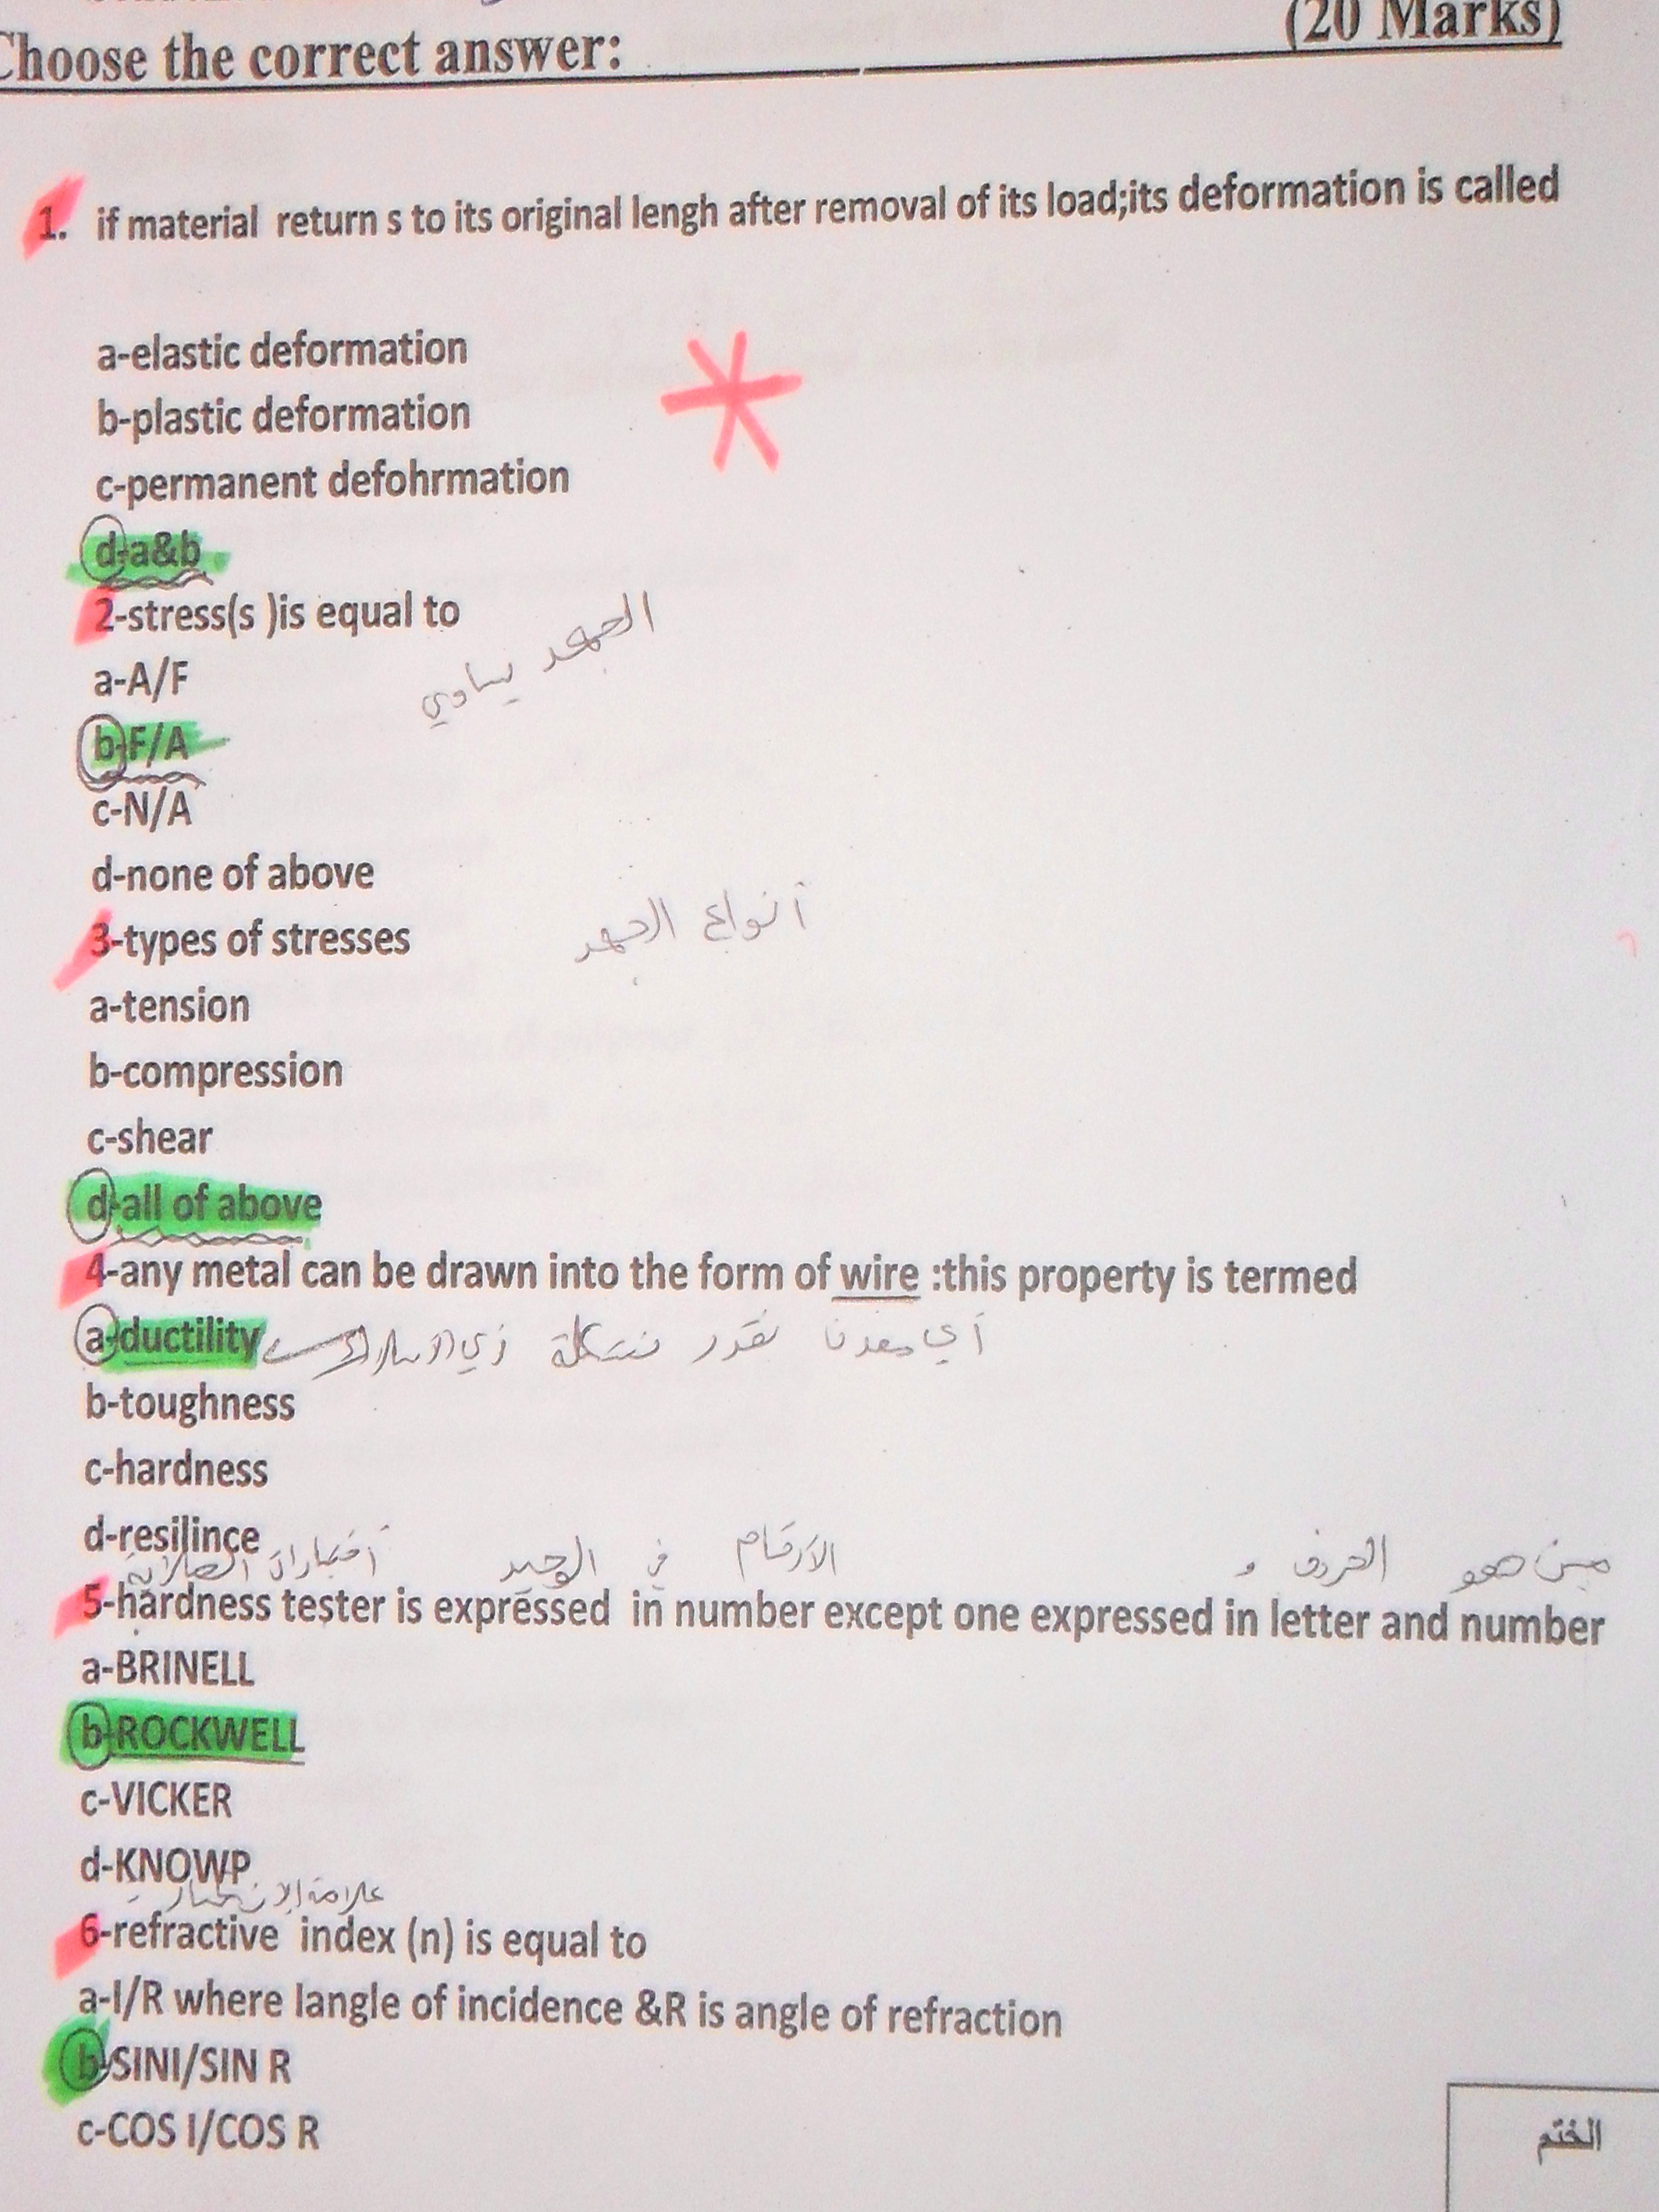 (20 Marks)
Choose the correct answer:
1. if material return s to its original lengh after removal of its load;its deformation is called
a-elastic deformation
b-plastic deformation
c-permanent defohrmation
d-a&b
2-stress(s )is equal to
الجهد يساوي
a-A/F
b-F/A
c-N/A
d-none of above
3-types of stresses
أنواع الجهد
a-tension
b-compression
c-shear
d-all of above
4-any metal can be drawn into the form of wire :this property is termed
a-ductility
أي معدن نقدر نشكلة زي
b-toughness
c-hardness
d-resilince
مين هو الحروف و الأرقام في الوحيد اختبارات الصلابة
5-hardness tester is expressed in number except one expressed in letter and number
a-BRINELL
b-ROCKWELL
c-VICKER
d-KNOWP
علامة
6-refractive index (n) is equal to
a-I/R where Iangle of incidence &R is angle of refraction
b-SINI/SIN R
c-COS I/COS R
الختم